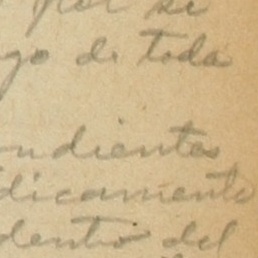 por si
go de toda
ndientes
dicamente
dentro del